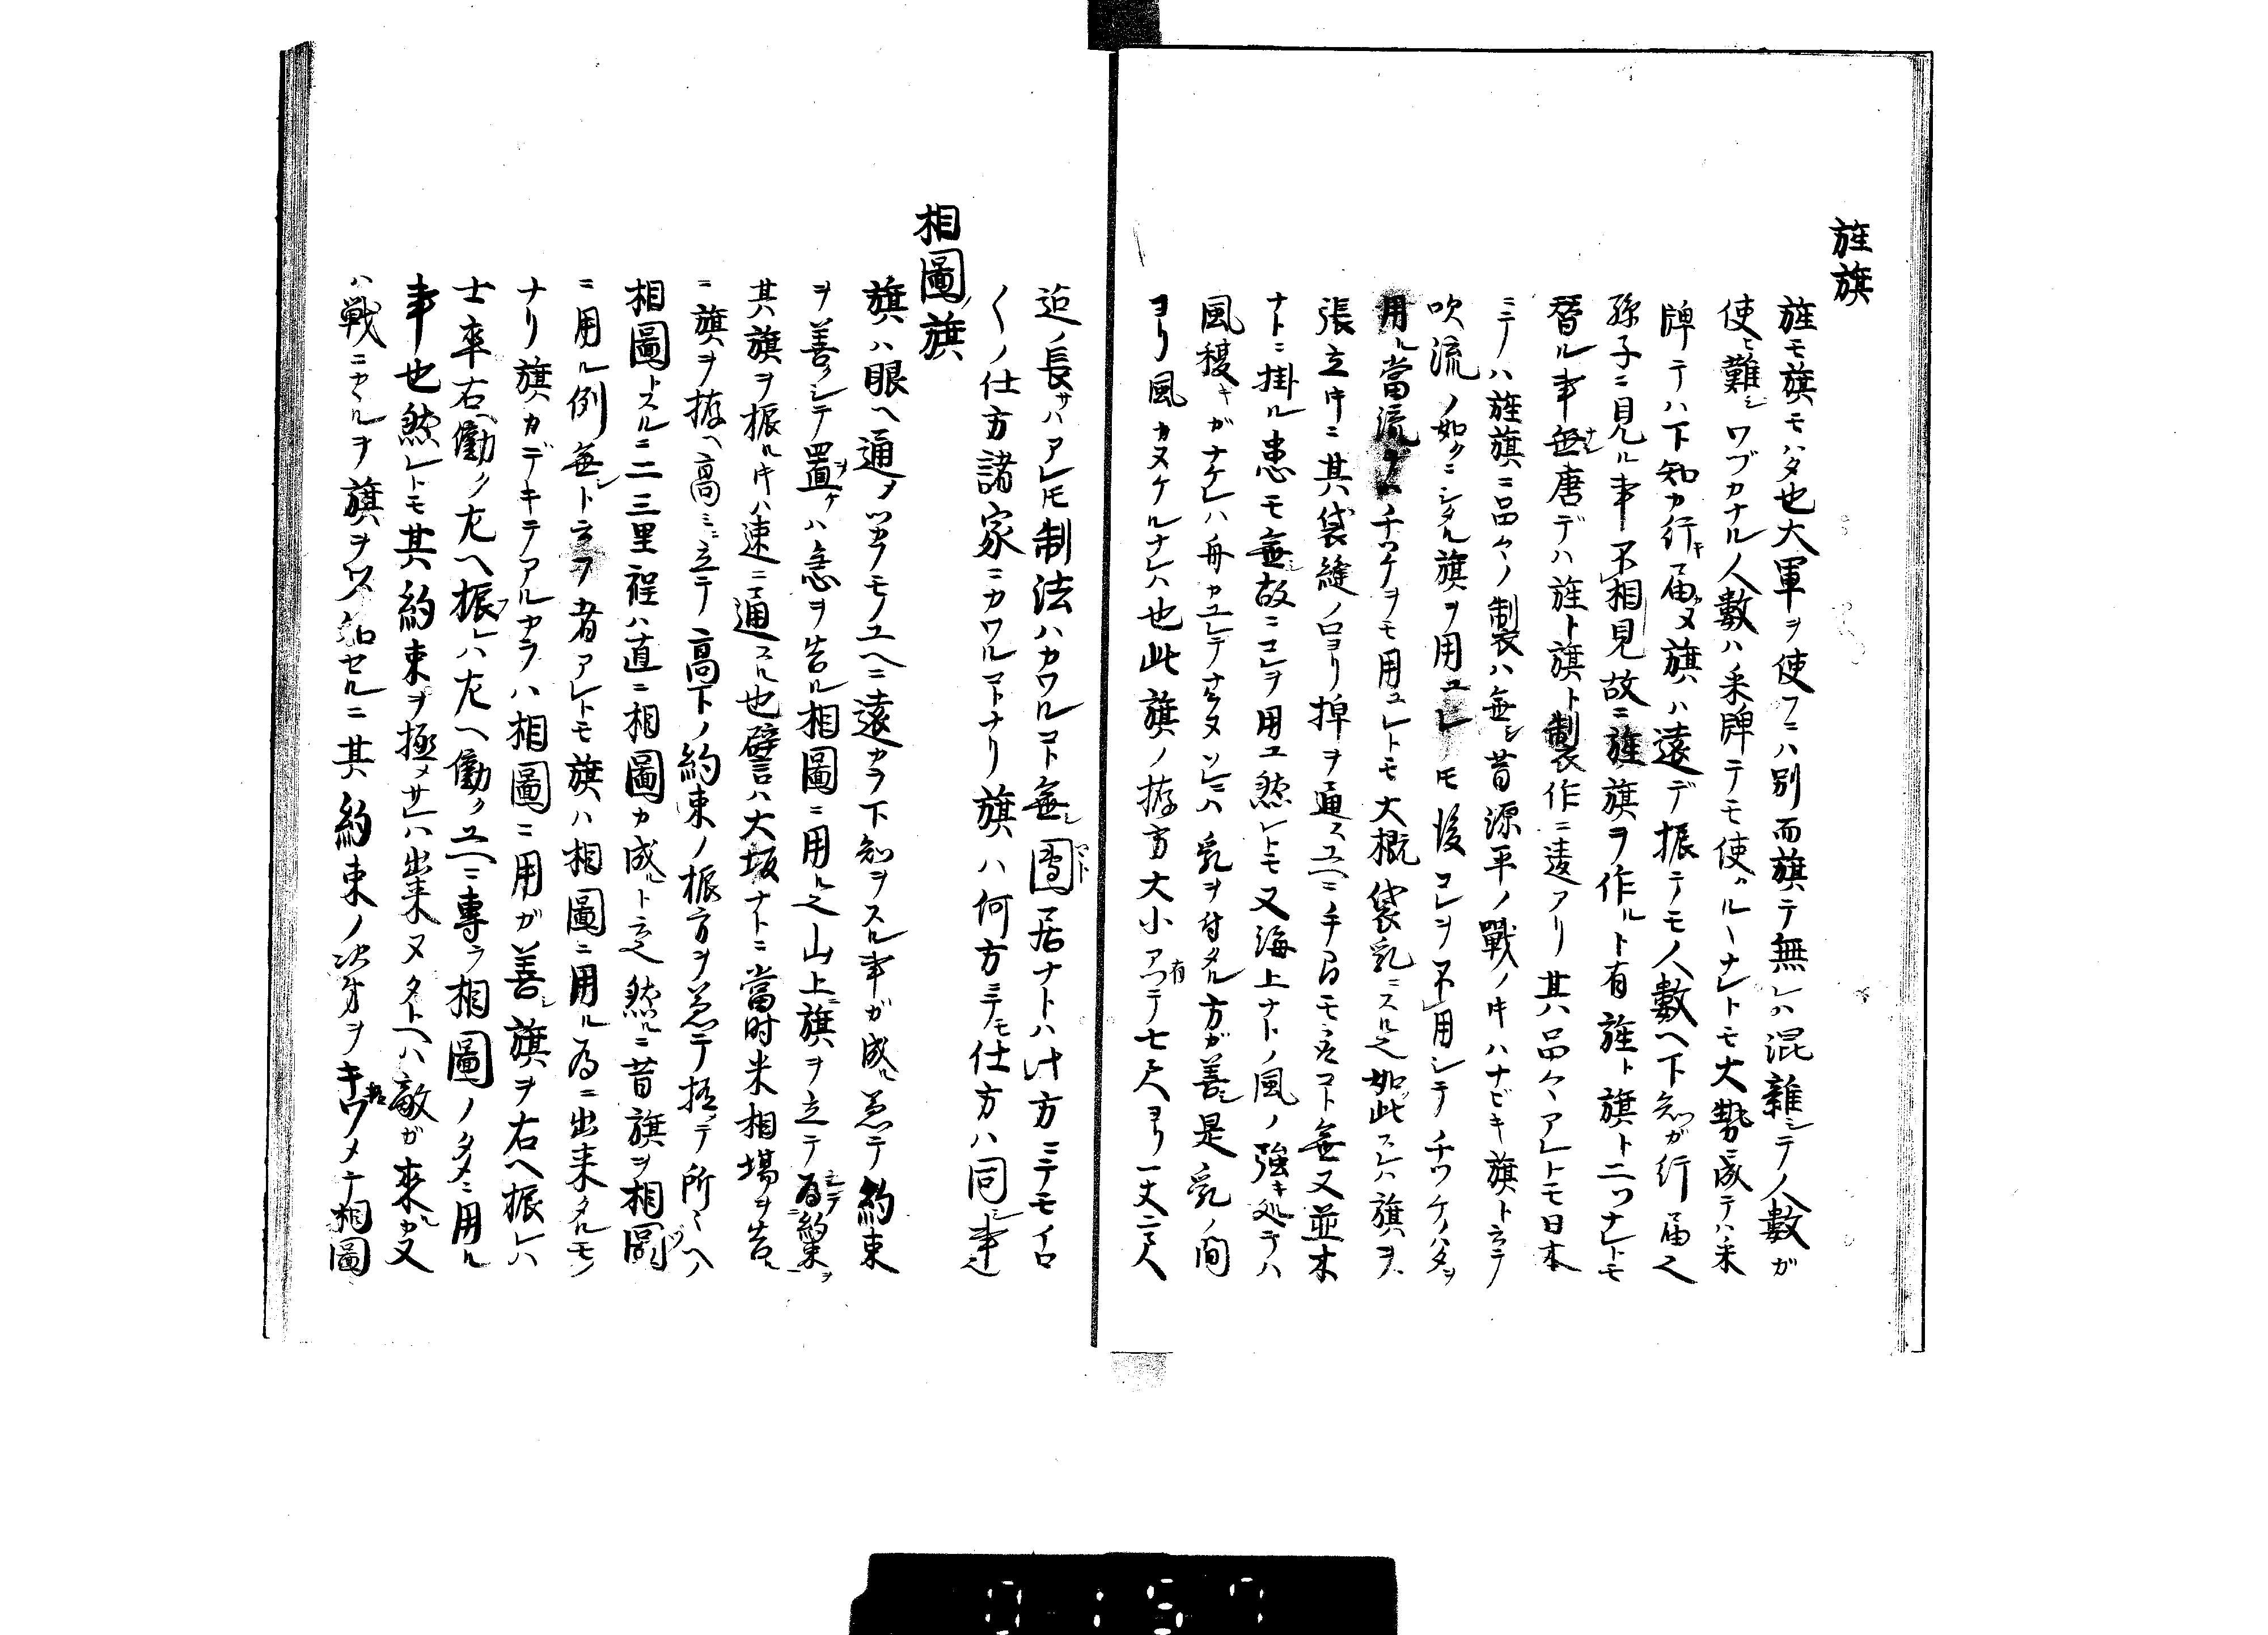 旌旗
旌モ旗モハタ也大軍ヲ使フニハ別而旗テ無レハ混雑シテノ人數ガ
使ヒ難シワヅカナル人數ハ采牌テモ使ハルヽナレトモ大勢ニ成テハ采
牌テハ下知カ行キ届カヌ旗ハ遠デ振テモ人數ヘ下知ガ行届也
孫子ニ見ルル事不相見故ニ旌旗ヲ作ルト有旌ト旗ト二ツナレトモ
替ル事無シ唐デハ旌ト旗ト製作ニ違アリ其品々アレトモ日本
ニテハ旌旗ニ品々ノ制ハ無シ昔源平ノ戰ノ時ハナビキ旗ト云テ
吹流ノ如クニシタル旗ヲ用ユレ𪜈後コレヲ不用シテチツケノハタヲ
用ル當流ノハチツケヲモ用ユレトモ大概袋乳ニスル也如此スレハ旗ヲ
張立時ニ其袋縫ノ口ヨリ掉ヲ通スユヘニ手マモ立コト無又並木
ナトニ掛ル患モ無シ故ニコレヲ用ユ然レトモ又海上ナトノ風ノ強キ処テハ
風穏キガナケレハ舟カユレテナラヌソレニハ乳ヲ付タル方ガ善シ是乳ノ間
ヨリ風カヌケルナレハ也此旗ノ拵方大小アツテ七尺ヨリ一丈二三尺
迄ノ長サハアレ𪜈制法ハカワルコト無シ圓居ナトハ此方ニテモイロ
〱ノ仕方諸家ニカワルコトナリ旗ハ何方ニテモ仕方ハ同シ事也
相圖ノ旗
旗ハ眼ヘ通ノツカフモノユヘニ遠カラ下知ヲスル事ガ成ル兼テ約束
ヲ善クシテ置ケハ急ヲ告ル相圖ニ用ル也山上ニ旗ヲ立テ為約束ヲ
其旗ヲ振ル時ハ速ニ通スル也譬ハ大坂ナトニ當时米相場ヲ告ル
ニ旗ヲ拵ヘ高ミニ立テ高下ノ約束ノ振方ヲ兼テ極テ所々ヘノ
相圖トスルニ二三里程ハ直ニ相圖カ成ルト云也然ルニ昔旗ヲ相圖
ニ用ル例無シト云フ者アレトモ旗ハ相圖ニ用ル為ニ出来タルモノ
ナリ旗カデキテアルカラハ相圖ニ用ガ善シ旗ヲ右ヘ振レハ
士卒右ヘ働ク左ヘ振レハ左ヘ働クユヘニ專ラ相圖ノタメニ用ル
事也然レトモ其約束ヲ極メサレハ出来ヌタトヘハ敵ガ來ルカ又
ハ戦ニカヽルヲ旗ヲ以知セルニ其約束ノ次第ヲキワメテ相圖